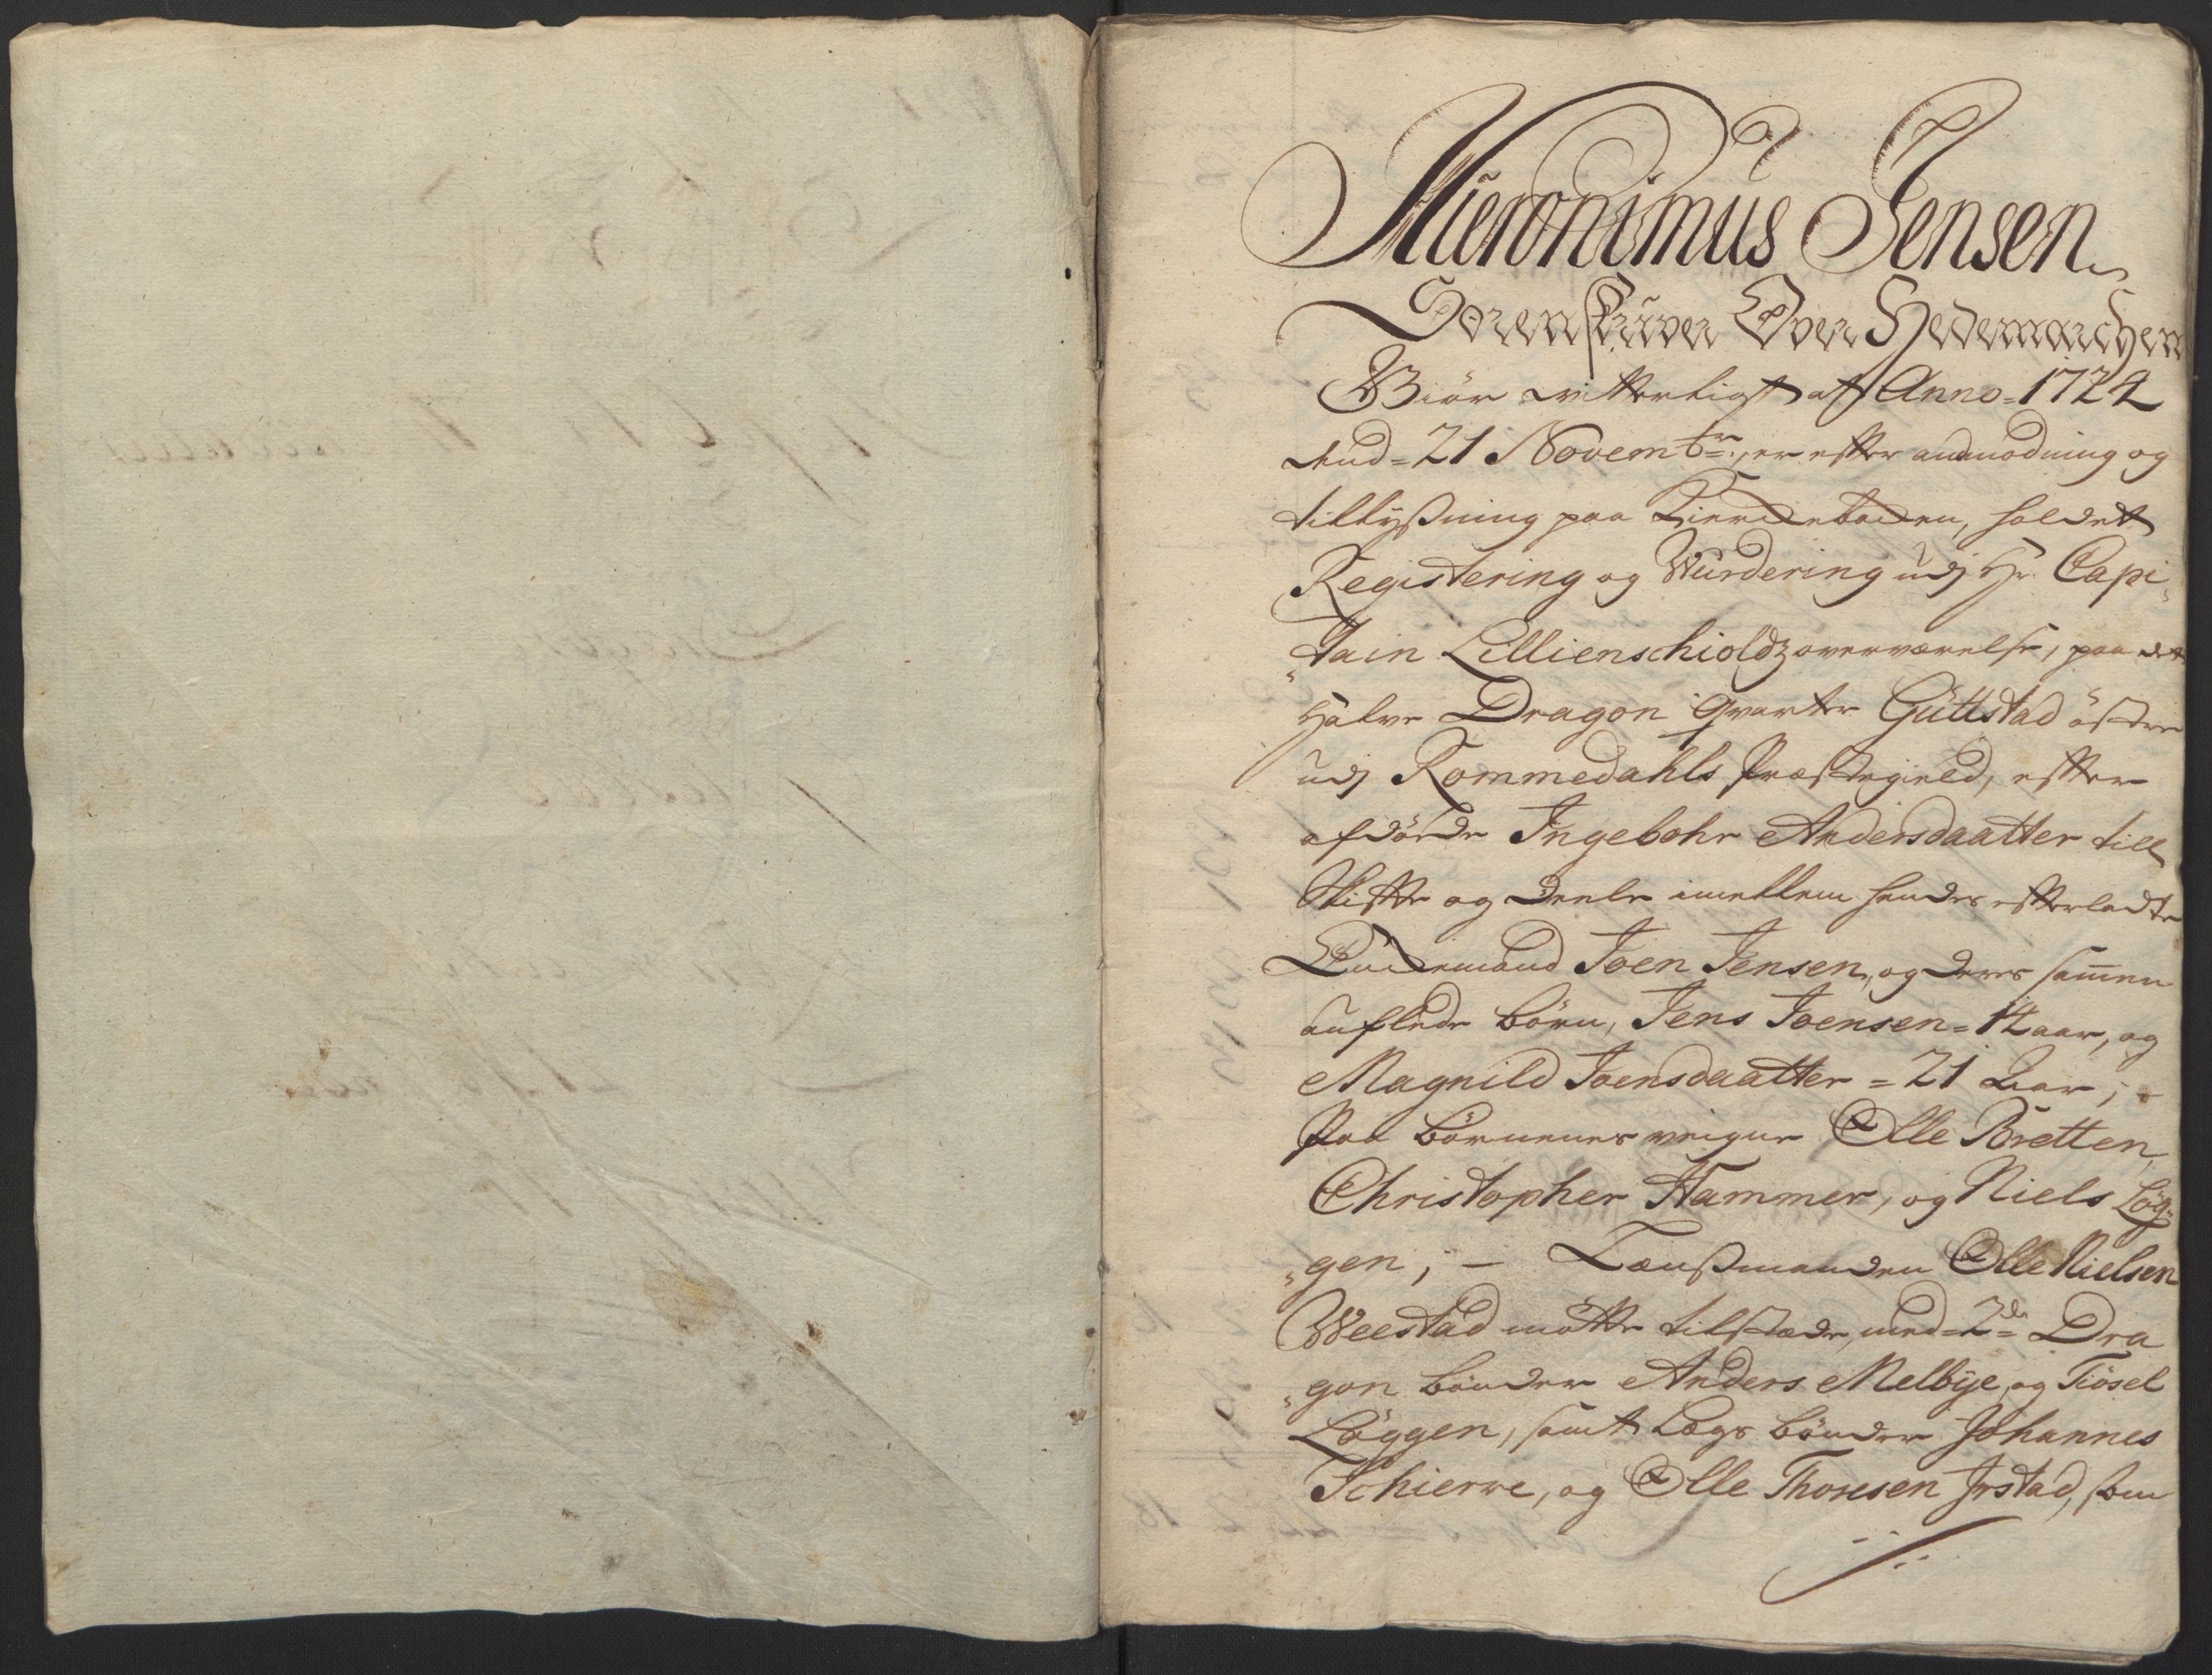 Hieronimus Jensen
Sorenskriver Over Hedemarchen
Giör vitterligt at Anno = 1724
dend = 21 Novembr:, er efter anmodning og
tillyßning paa Kierchebachen, holdet
Registering og Wurdering udj Hr. Capi„
„tain Lillienschioldz overværelse, paa det
Halve Dragon Qvarter Guttstad östre
udj Rommedahls Præstegield, efter
afdöde Ingebohr Andersdaatter till
Skifte og Deele imellem hendes efterladte
Enckemand Joen Jensen, og deres sam̄en
auflede börn, Jens Joensen = 12 aar, og
Magnild Joensdaatter = 21 Aar; -
Paa börnenes veigne Olle Bretten,
Christopher Hammer, og Niels Lög„
„gen; – Lænßmanden Olle Nielsen
Weestad mötte tilstæde, med = 2de = Dra
„gon bönder Anders Melbÿe, og Tiösel
Löggen, samt Lægs bönder Johannes
Schierre, og Olle Thoresen Irstad, som